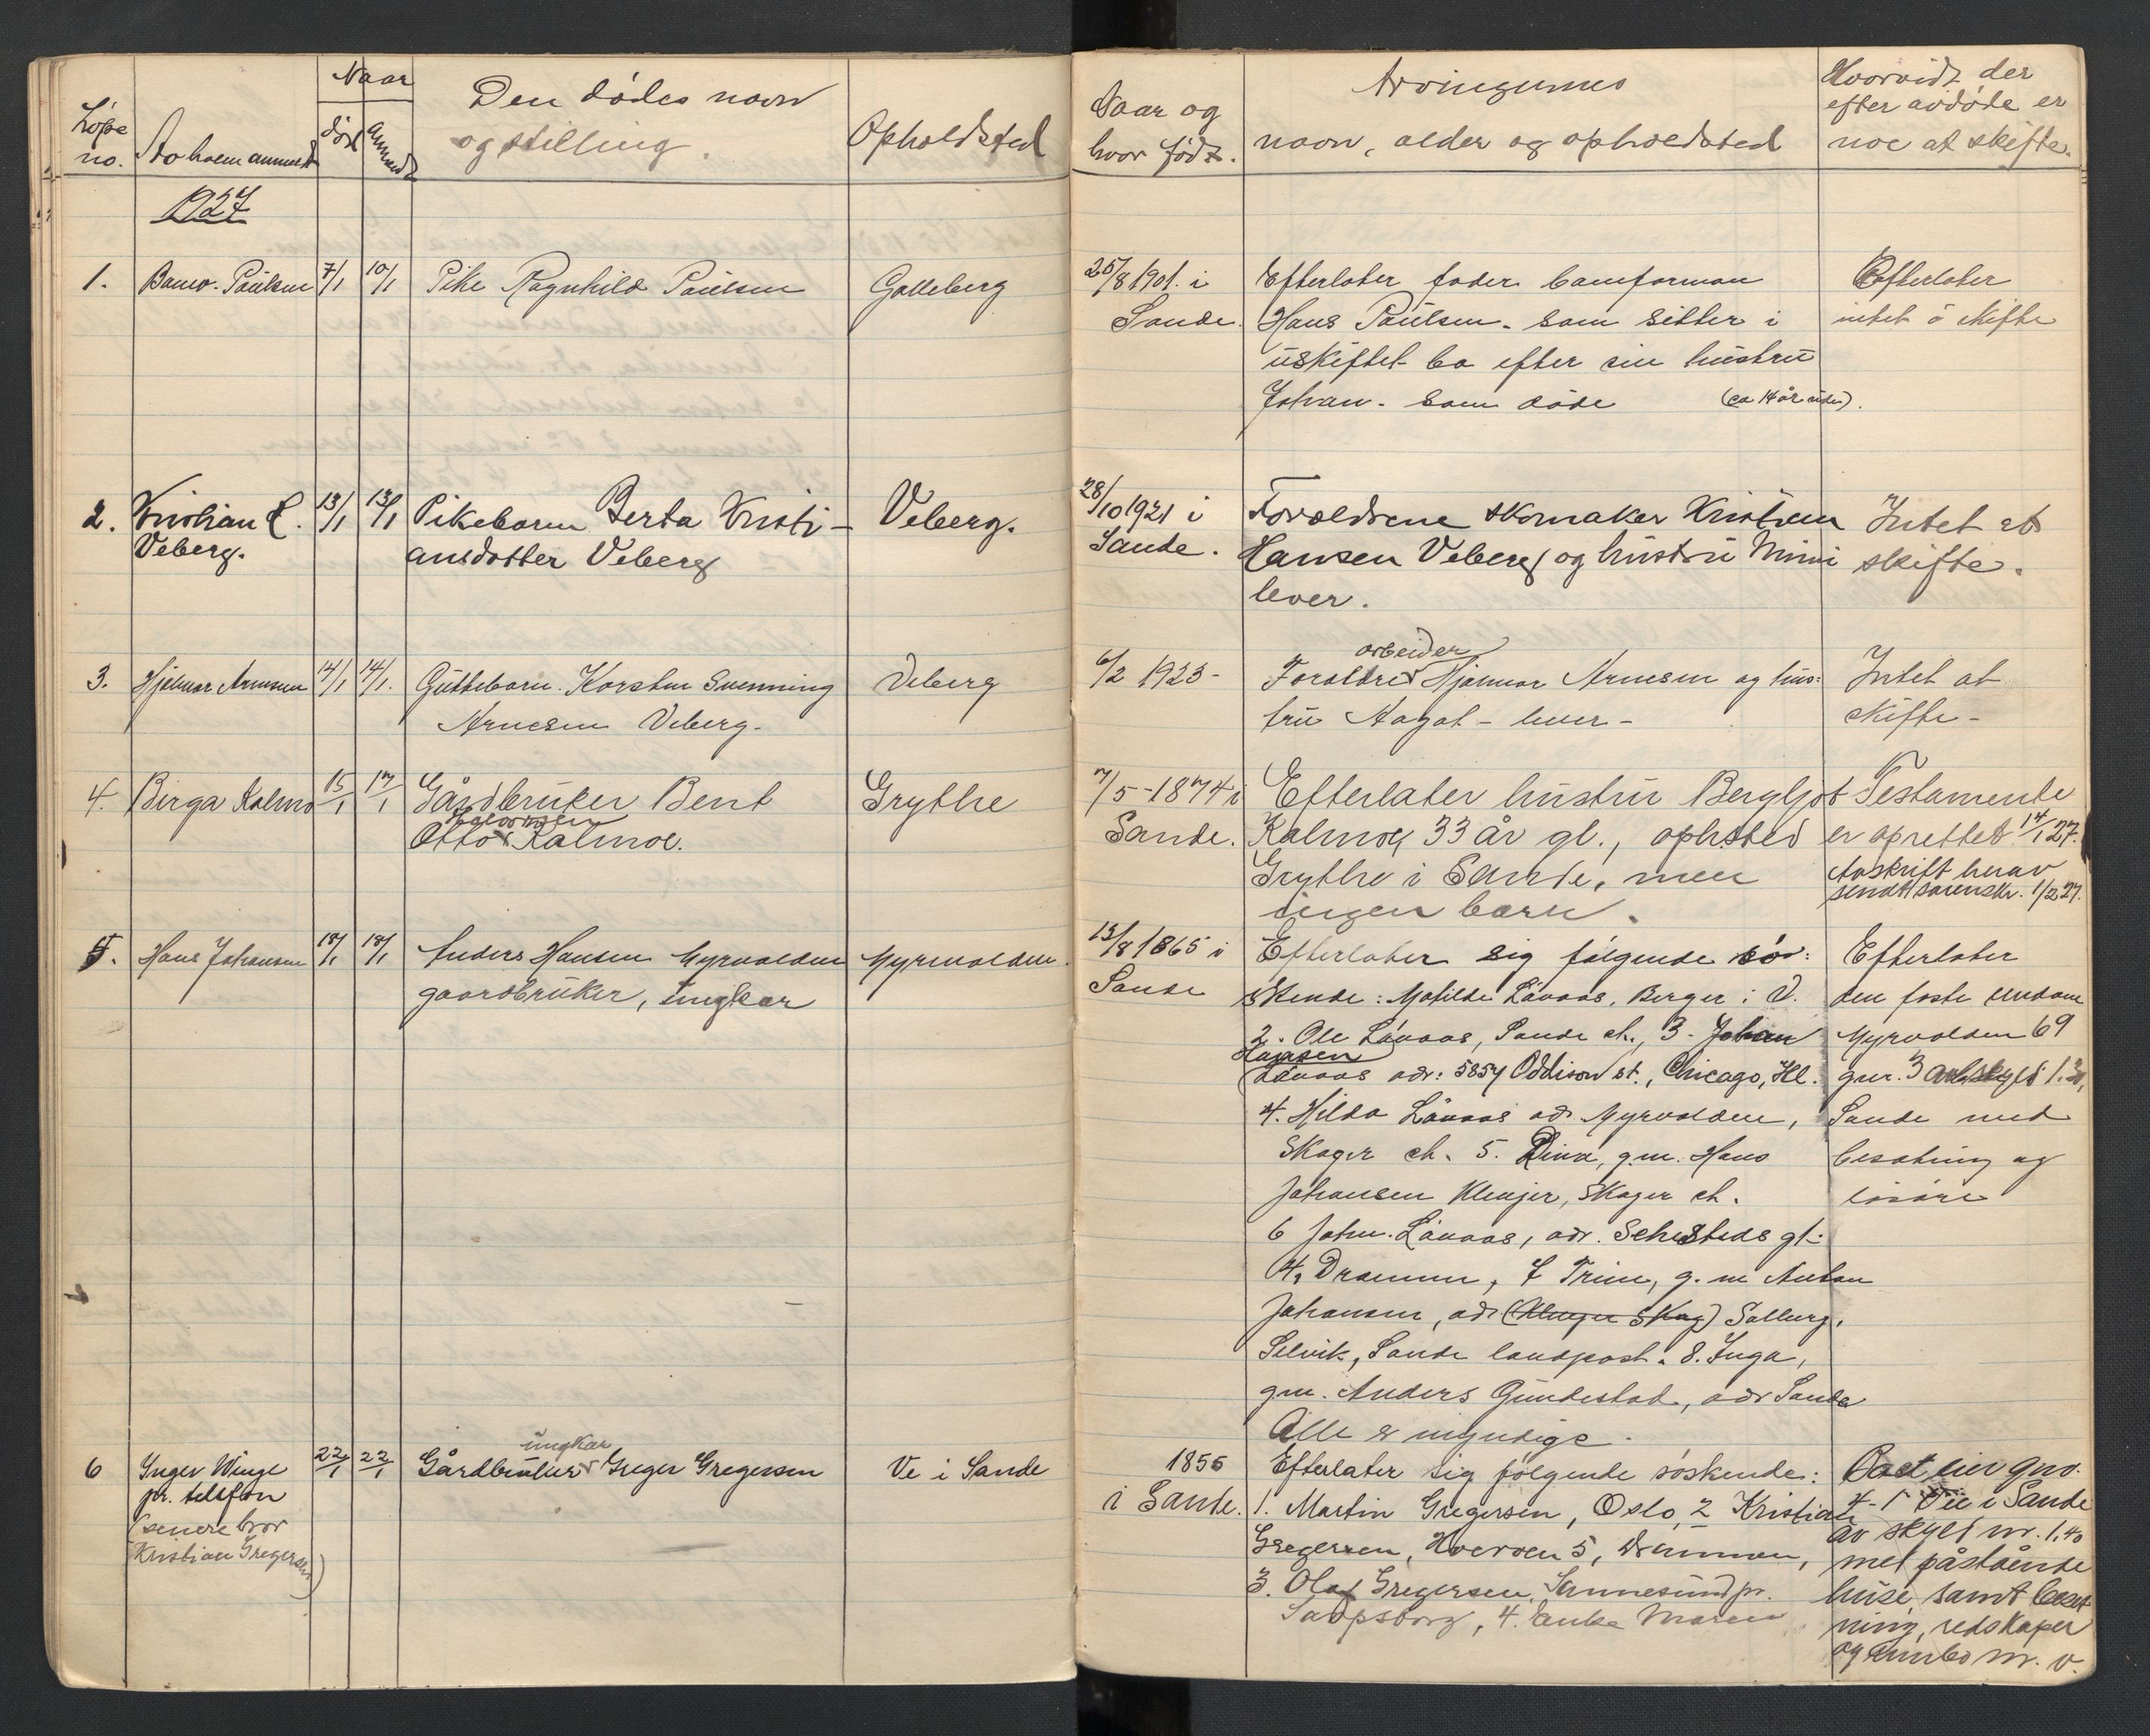 Løpe no.
Av hvem anmeldt
Naar
død
anmeldt
Den dødes navn
og stilling.
Opholdsted
Naar og
hvor født.
Arvingernes
navn, alder og opholdsted
Hvorvidt der
efter avdøde er
noe at skifte.
1927
1.
Banev. Paulsen
7/1
10/1
Pike Ragnhild Paulsen
Galleberg
25/8 1901. i
Sande.
Efterlater fader banforman
Hans Paulsen. som sitter i
uskiftet bo efter sin hustru
Johan. som døde (ca 14 år siden).
Efterlater
intet å skifte
2.
Kristian H.
Veberg.
13/1
13/1
Pikebarn Berta Kristi-
ansdatter Veberg
Veberg.
28/10 1921 i
Sande.
Forældrene skomaker Kristian
Hansen Veberg og hustru Mimi
lever.
Intet at
skifte.
3.
Hjalmar Arnesen
14/1
14/1.
Guttebarn. Karsten Svenning
Arnesen Veberg.
Veberg
6/2 1923-
arbeider
Foraldre Hjalmar Arnesen og hus-
tru Aagot - lever -
Intet at
skifte -
4.
Birga Kalmo
15/1
17/1
Gårdbruker Bent
Otto Kalmoe.
Grythe
7/5-1874 i
Sande.
Efterlater hustru Bergljot
Kalmoe, 33 år gl., ophsted
Grythe i Sande, men
ingen barn.
Testamente
er oprettet 14/1 27.
Avskrift herav
sendt sorenskr. 1/2 27.
5.
Hans Johansen
18/1
18/1
Anders Hansen Myrvolden
gaardbruker, ungkar
Myrvolden.
13/8 1865 i
Sande
Efterlater sig følgende sø-
skende: Matilde Låvaas, Berger i V.
2. Ole Låvaas, Sande st., 3. Johan
Hansen
Låvaas adr: 5854 Oddison st., Chicago, Ill.
4. Hilda Låvaas adr Myrvolden,
Skoger st. 5. Dina, g.m. Hans
Johansen Klevjer, Skoger st.
6 John. Låvaas, adr. Sehesteds gt.
4, Drammen, 7 Trine, g. m Anton
Johansen, adr (Klevjer Skog) Solberg,
Selvik, Sande landpost. 8. Inga,
gm. Anders Gundestad, adr Sande
Alle er myndige.
Efterlater
den faste eiendom
Myrvolden 69
gnr. 3 av skyld 1.30,
Sande med
besetning og
løsøre
6
Inger Winge
pr. telefon
(senere bror
Kristian Gregersen)
22/1
22/1
ungkar
Gårdbruker Greger Gregersen
Ve i Sande
1856
i Sande.
Efterlater sig følgende søskende:
1. Martin Gregersen, Oslo, 2 Kristian
Gregersen, Hverven 5, Drammen,
3. Olaf Gregersen, Sannesund pr.
Sarpsborg, 4. Enke Maren
Boet eier gno.
4-1 Vee i Sande
av skyld m. 1.40
med påstående
huse, samt beset
ning, redskaper
og innbo m. v.